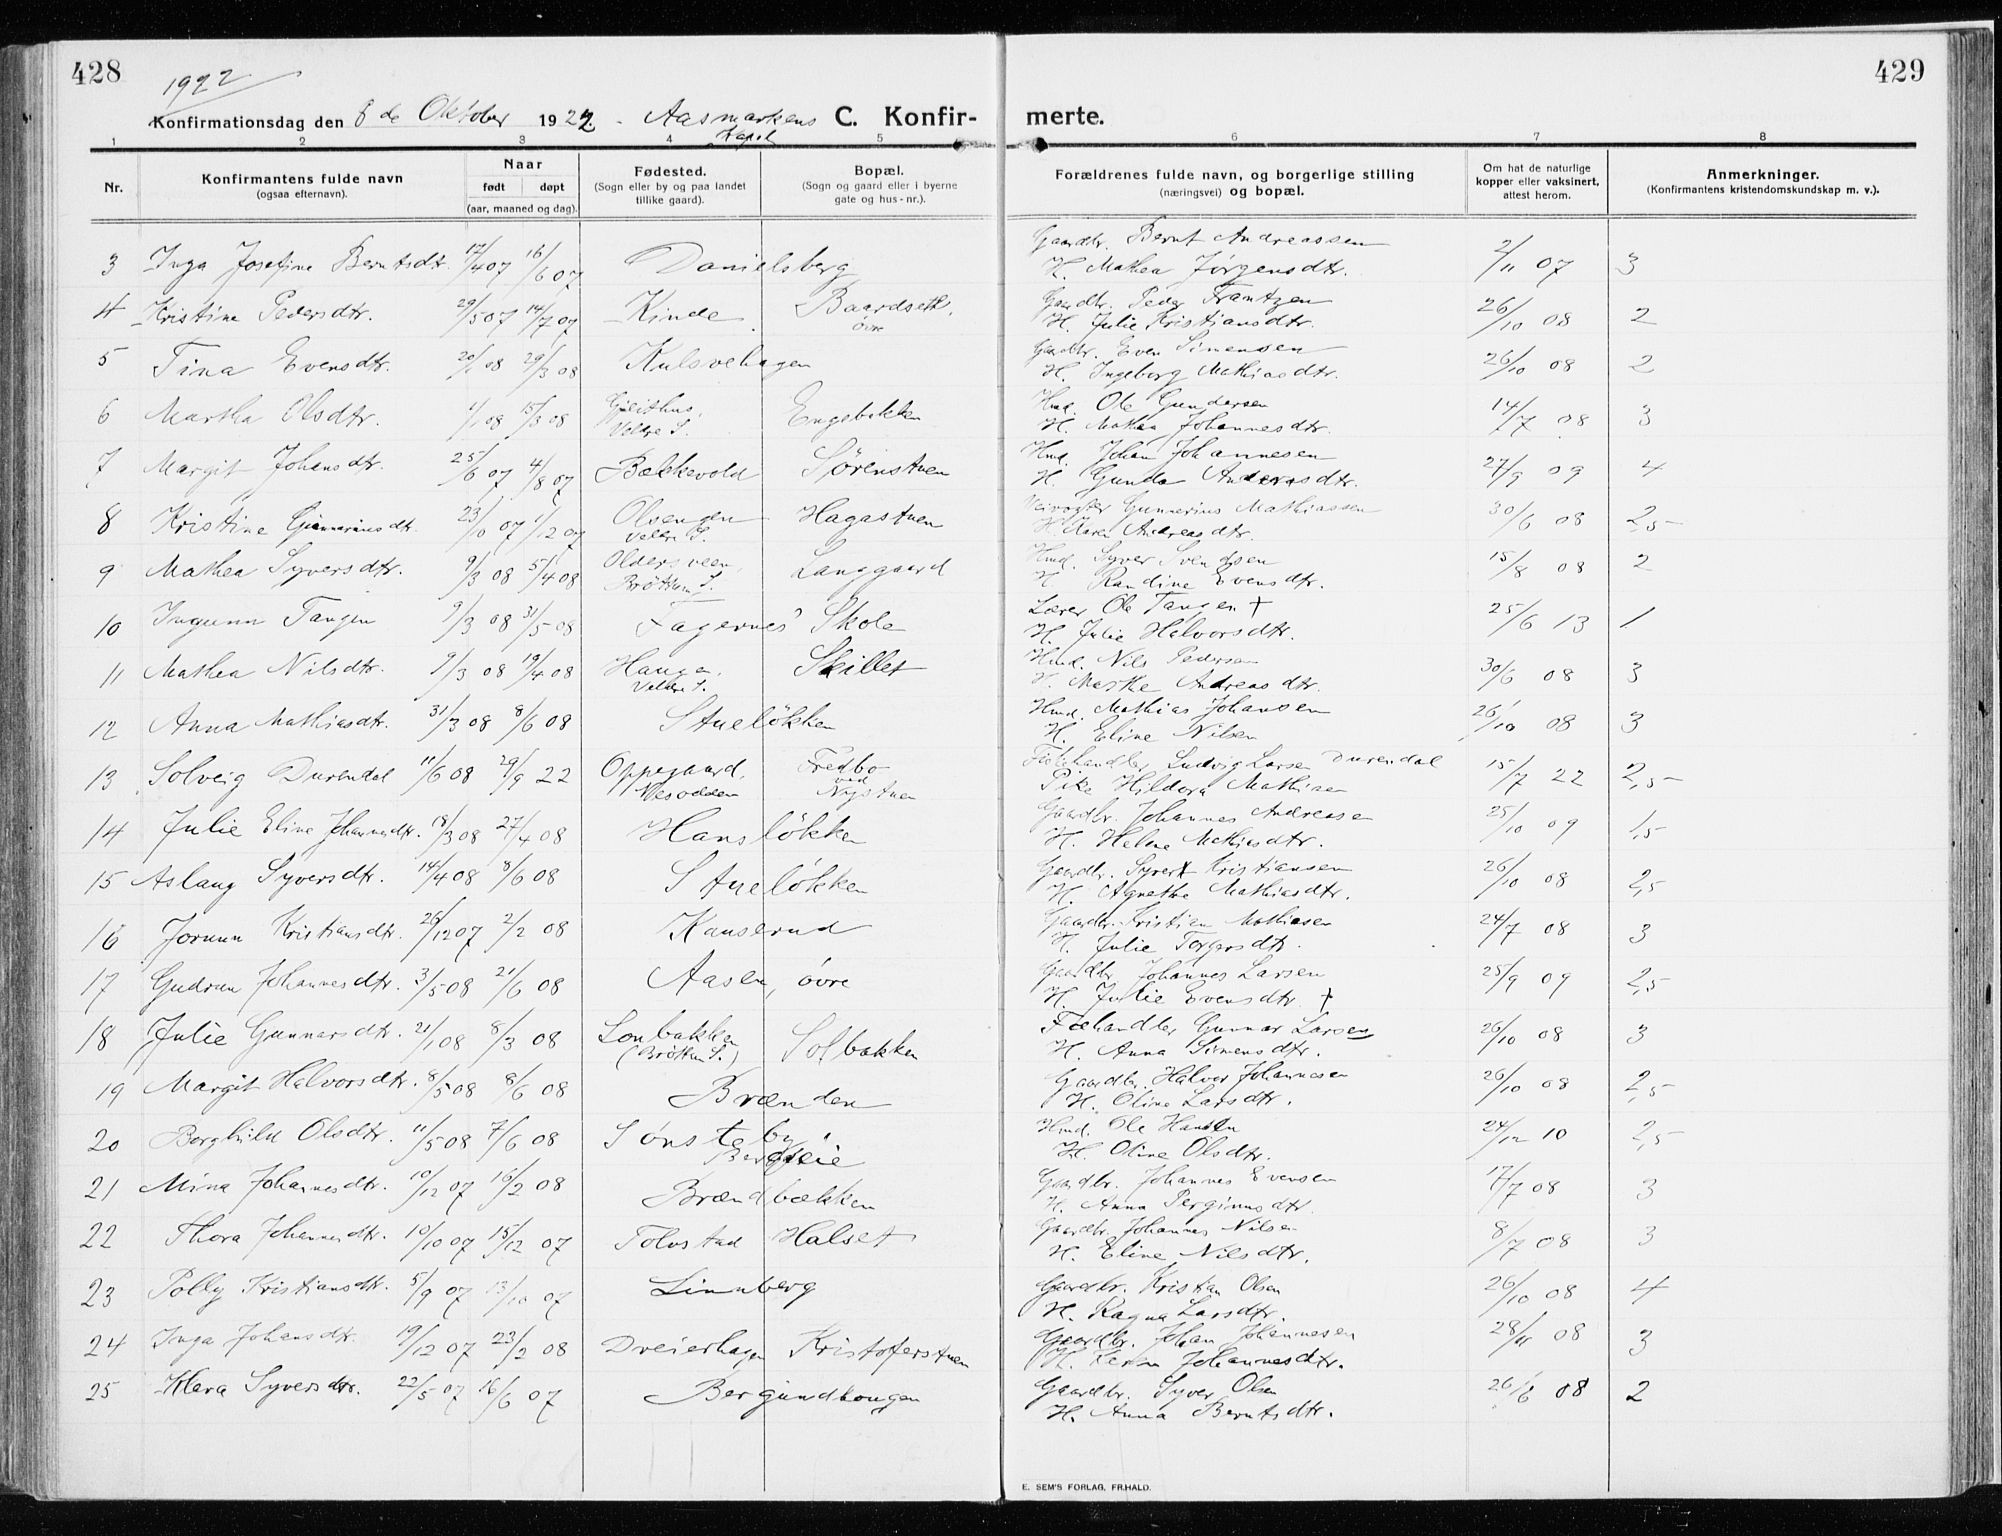 428
429
1922
Konfirmationsdag den 8de Oktober 1922. - Aasmarkens Kapel C. Konfir- merte.
1 2 3 4 5 6 7 8
Nr.
Konfirmantens fulde navn
(ogsaa efternavn).
Naar
født døpt
(aar, maaned og dag).
Fødested.
(Sogn eller by og paa landet
tillike gaard).
Bopæl.
(Sogn og gaard eller i byerne
gate og hus-nr.).
Forældrenes fulde navn, og borgerlige stilling
(næringsvei) og bopæl.
Om hat de naturlige
kopper eller vaksinert,
attest herom.
Anmerkninger.
(Konfirmantens kristendomskundskap m. v.).
3 Inga Josefine Berntsdtr. 17/4 07 16/6 07 Danielsberg Gaardbr. Bernt Andreassen 2/11 07 3
H. Mathea Jørgensdtr.
4 Kristine Pedersdtr. 29/5 07 14/7 07 Kinde Baardseth, øvre Gaardbr. Peder Frantzen 26/10 08 2
H. Julie Kristiansdtr.
5 Tina Evensdtr. 20/1 08 29/3 08 Kulsvehagen Gaardbr. Even Simensen 26/10 08 2
H. Ingeborg Mathiasdtr.
6 Martha Olsdtr. 1/1 08 15/3 08 Veldre S. Engebakken Hmd. Ole Gundersen 14/7 08 3
H. Mathea Johannesdtr.
7 Margit Johansdtr. 25/6 07 4/8 07 Bækkevold Sørenstuen Hmd. Johan Johannesen 27/9 09 4
H. Gunda Andersdtr.
8 Kristine Gunnariusdtr. 23/10 07 1/12 07 Olsengen Veldre S. Hagastuen Veivogter Gunnerius Mathiassen 30/6 08 2,5
H. Karen Andreasdtr.
9 Mathea Syversdtr. 9/3 08 5/4 08 Oldersveen, Brøttum S. Langgaard Hmd. Syver Svendsen 15/8 08 2
H. Randine Evensdtr.
10 Ingunn Tangen 9/3 08 31/5 08 Fagernes Skole Lærer Ole Tangen + 25/6 13 1
H. Julie Halvorsdtr.
11 Mathea Nilsdtr. 9/3 08 19/4 08 Hauga, Veldre S. Skillet Hmd. Nils Pedersen 30/6 08 3
H. Marthe Andreasdtr.
12 Anna Mathiasdtr. 31/3 08 8/6 08 Stueløkken Hmd. Mathias Johansen 26/10 08 3
H. Eline Nilsen
13 Solveig Durendal 11/6 08 29/9 22 Oppegaard, Nesodden Fredbo ved Nystuen Fiskehandler Ludvig Larsen Durendal 15/7 22 2,5
Pike Hildora Mathisen
14 Julie Eline Johannesdtr. 18/3 08 27/4 08 Hansløkken Gaardbr. Johannes Andreasen 25/10 09 1,5
H. Helene Mathiasdtr.
15 Aslaug Syversdtr. 14/4 08 8/6 08 Stueløkken Gaardbr. Syvert Kristiansen 26/10 08 2,5
H. Agnethe Mathiasdtr.
16 Jorunn Kristiansdtr. 26/12 07 2/2 08 Kanserud Gaardbr. Kristian Mathiasen 24/7 08 3
H. Julie Torgersdtr.
17 Gudrun Johannesdtr. 3/5 08 21/6 08 Aasen, øvre Gaardbr. Johannes Larsen 25/9 09 2,5
H. Julie Evensdtr. +
18 Julie Gunnarsdtr. 21/1 08 8/3 08 Lonbakken (Brøttum S.) Solbakken Fæhandler Gunnar Larsen 26/10 08 3
H. Anna Simensdtr.
19 Margit Halvorsdtr. 8/5 08 8/6 08 Brænden Gaardbr. Halvor Johannesen 26/10 08 2,5
H. Oline Larsdtr.
20 Borghild Olsdtr. 11/5 08 7/6 08 Sønsteby Bergseie Hmd. Ole Hansen 24/12 10 2,5
H. Oline Olsdtr.
21 Mina Johannesdtr. 10/12 07 16/2 08 Brændbækken Gaardbr. Johannes Evensen 17/7 08 3
H. Anna Perginusdtr.
22 Thora Johannesdtr. 10/10 07 15/12 07 Tolvstad Halset Gaardbr. Johannes Nilsen 8/7 08 3
H. Eline Nilsdtr.
23 Polly Kristiansdtr. 5/9 07 13/10 07 Linnberg Gaardbr. Kristian Olsen 26/10 08 4
H. Ragna Larsdtr.
24 Inga Johansdtr. 19/12 07 23/2 08 Dreierhagen Kristoferstuen Gaardbr. Johan Johannesen 28/11 08 3
H. Karen Johannesdtr.
25 Klara Syversdtr. 22/5 07 16/6 07 Bergundhougen Gaardbr. Syver Olsen 26/6 08 2
H. Anna Berntsdtr.
E. SEM'S FORLAG, FR.HALD.